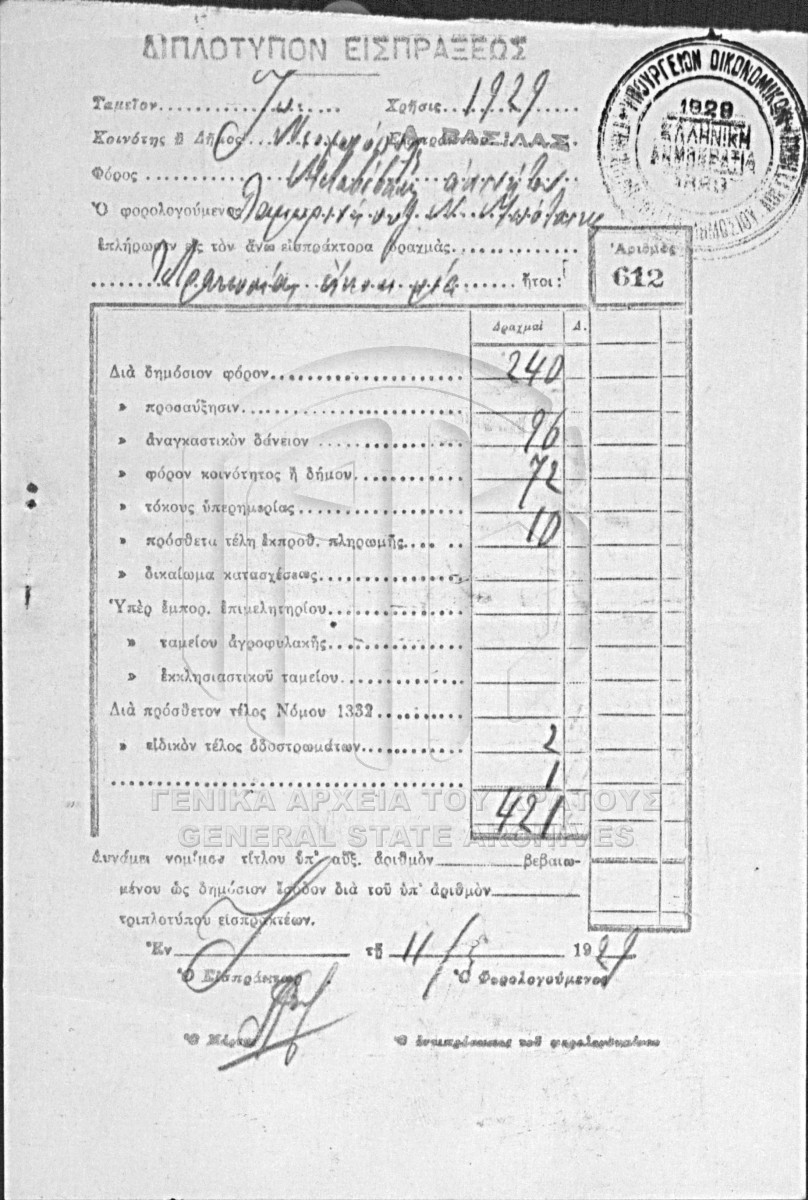 ΔΙΠΛΟΤΥΠΟΝ ΕΙΣΠΡΑΞΕΩΣ
Ταμεῖον Χρῆσις 1929
Κοινότης ἢ Δῆμος Εἰσπράκτωρ Α. ΒΑΣΙΛΑΣ
Φόρος
Ὁ φορολογούμενος
ἐπλήρωσεν εἰς τὸν ἄνω εἰσπράκτορα δραχμὰς
Τετρακοσίας εἴκοσι μία ἤτοι:
ΥΠΟΥΡΓΕΙΟΝ ΟΙΚΟΝΟΜΙΚΩΝ
1929
ΕΛΛΗΝΙΚΗ
ΔΗΜΟΚΡΑΤΙΑ
Ἀριθμὸς
612
Δραχμαὶ Λ.
Διὰ δημόσιον φόρον 240
» προσαύξησιν
» ἀναγκαστικὸν δάνειον 96
» φόρον κοινότητος ἢ δήμου 72
» τόκους ὑπερημερίας 10
» πρόσθετα τέλη ἐκπροθ. πληρωμῆς
» δικαίωμα κατασχέσεως
Ὑπὲρ ἐμπορ. ἐπιμελητηρίου
» ταμείου ἀγροφυλακῆς
» ἐκκλησιαστικοῦ ταμείου
Διὰ πρόσθετον τέλος Νόμου 1332
» εἰδικὸν τέλος ὁδοστρωμάτων 2
1
421
ΓΕΝΙΚΑ ΑΡΧΕΙΑ ΤΟΥ ΚΡΑΤΟΥΣ
GENERAL STATE ARCHIVES
Δυνάμει νομίμου τίτλου ὑπ' αὔξ. ἀριθμὸν βεβαιω-
μένου ὡς δημόσιον ἔσοδον διὰ τοῦ ὑπ' ἀριθμὸν
τριπλοτύπου εἰσπρακτέων.
Ἐν τῇ 11/ 1929
Ὁ Εἰσπράκτωρ Ὁ Φορολογούμενος
Ὁ Ὁ ἀντιπρόσωπος τοῦ φορολογουμένου